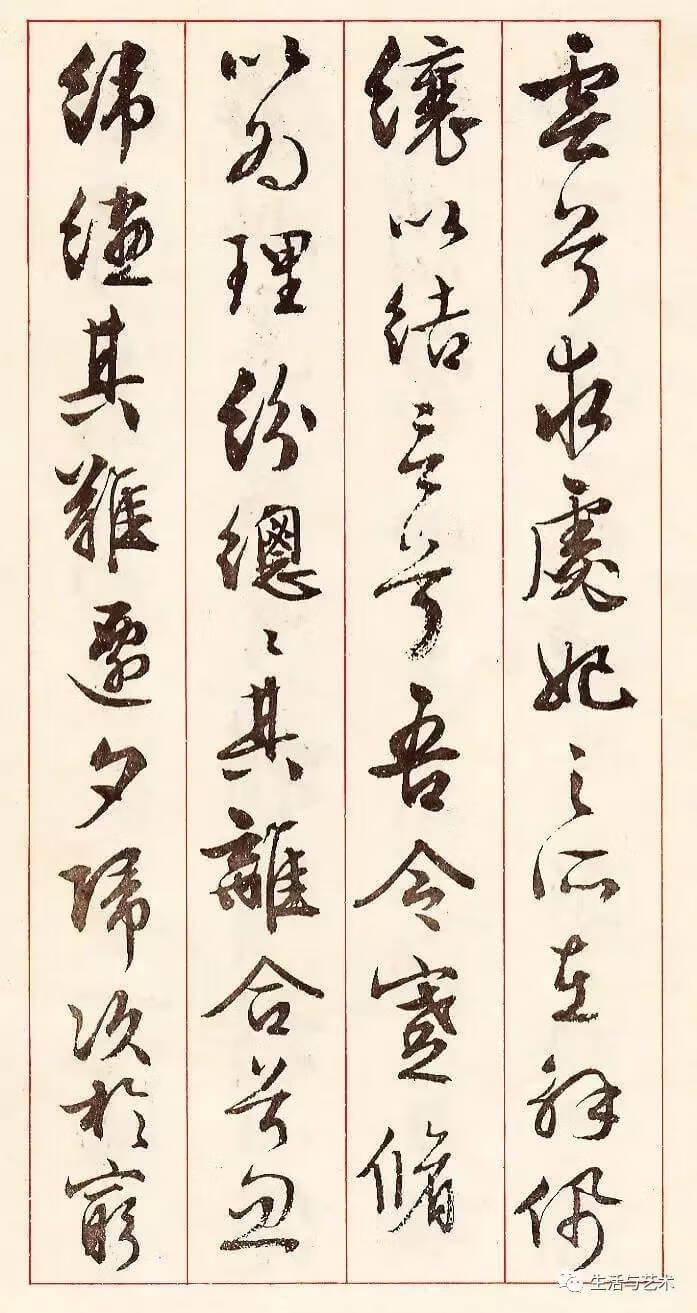 雲兮求虙妃之所在解佩
纕以結言兮吾令蹇脩
以為理紛總〻其離合兮忽
緯繣其難遷夕歸次於窮
生活与艺术